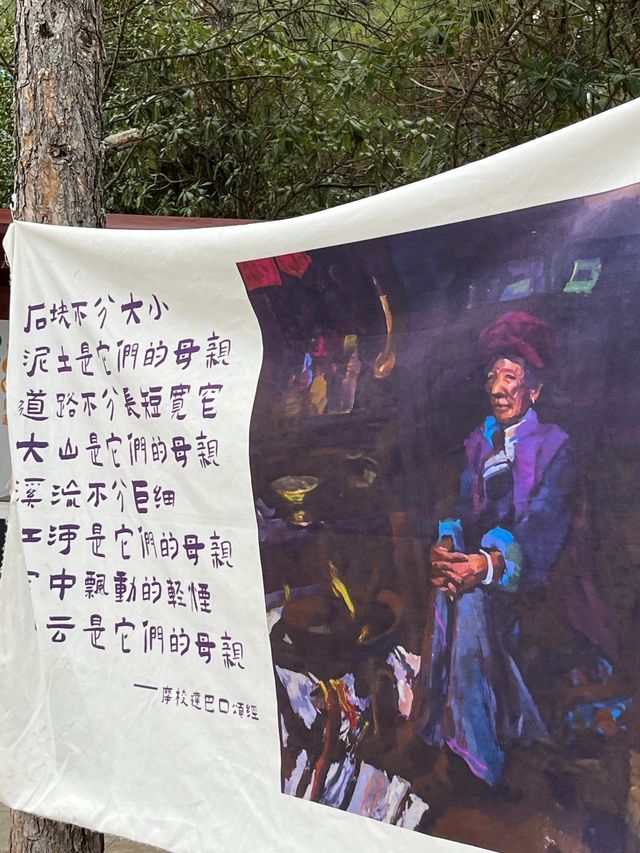 石块不分大小
泥土是它們的母親
道路不分長短寬窄
大山是它們的母親
溪流不分巨細
江河是它們的母親
中飄動的輕煙
云是它們的母親
——摩梭達巴口頌經